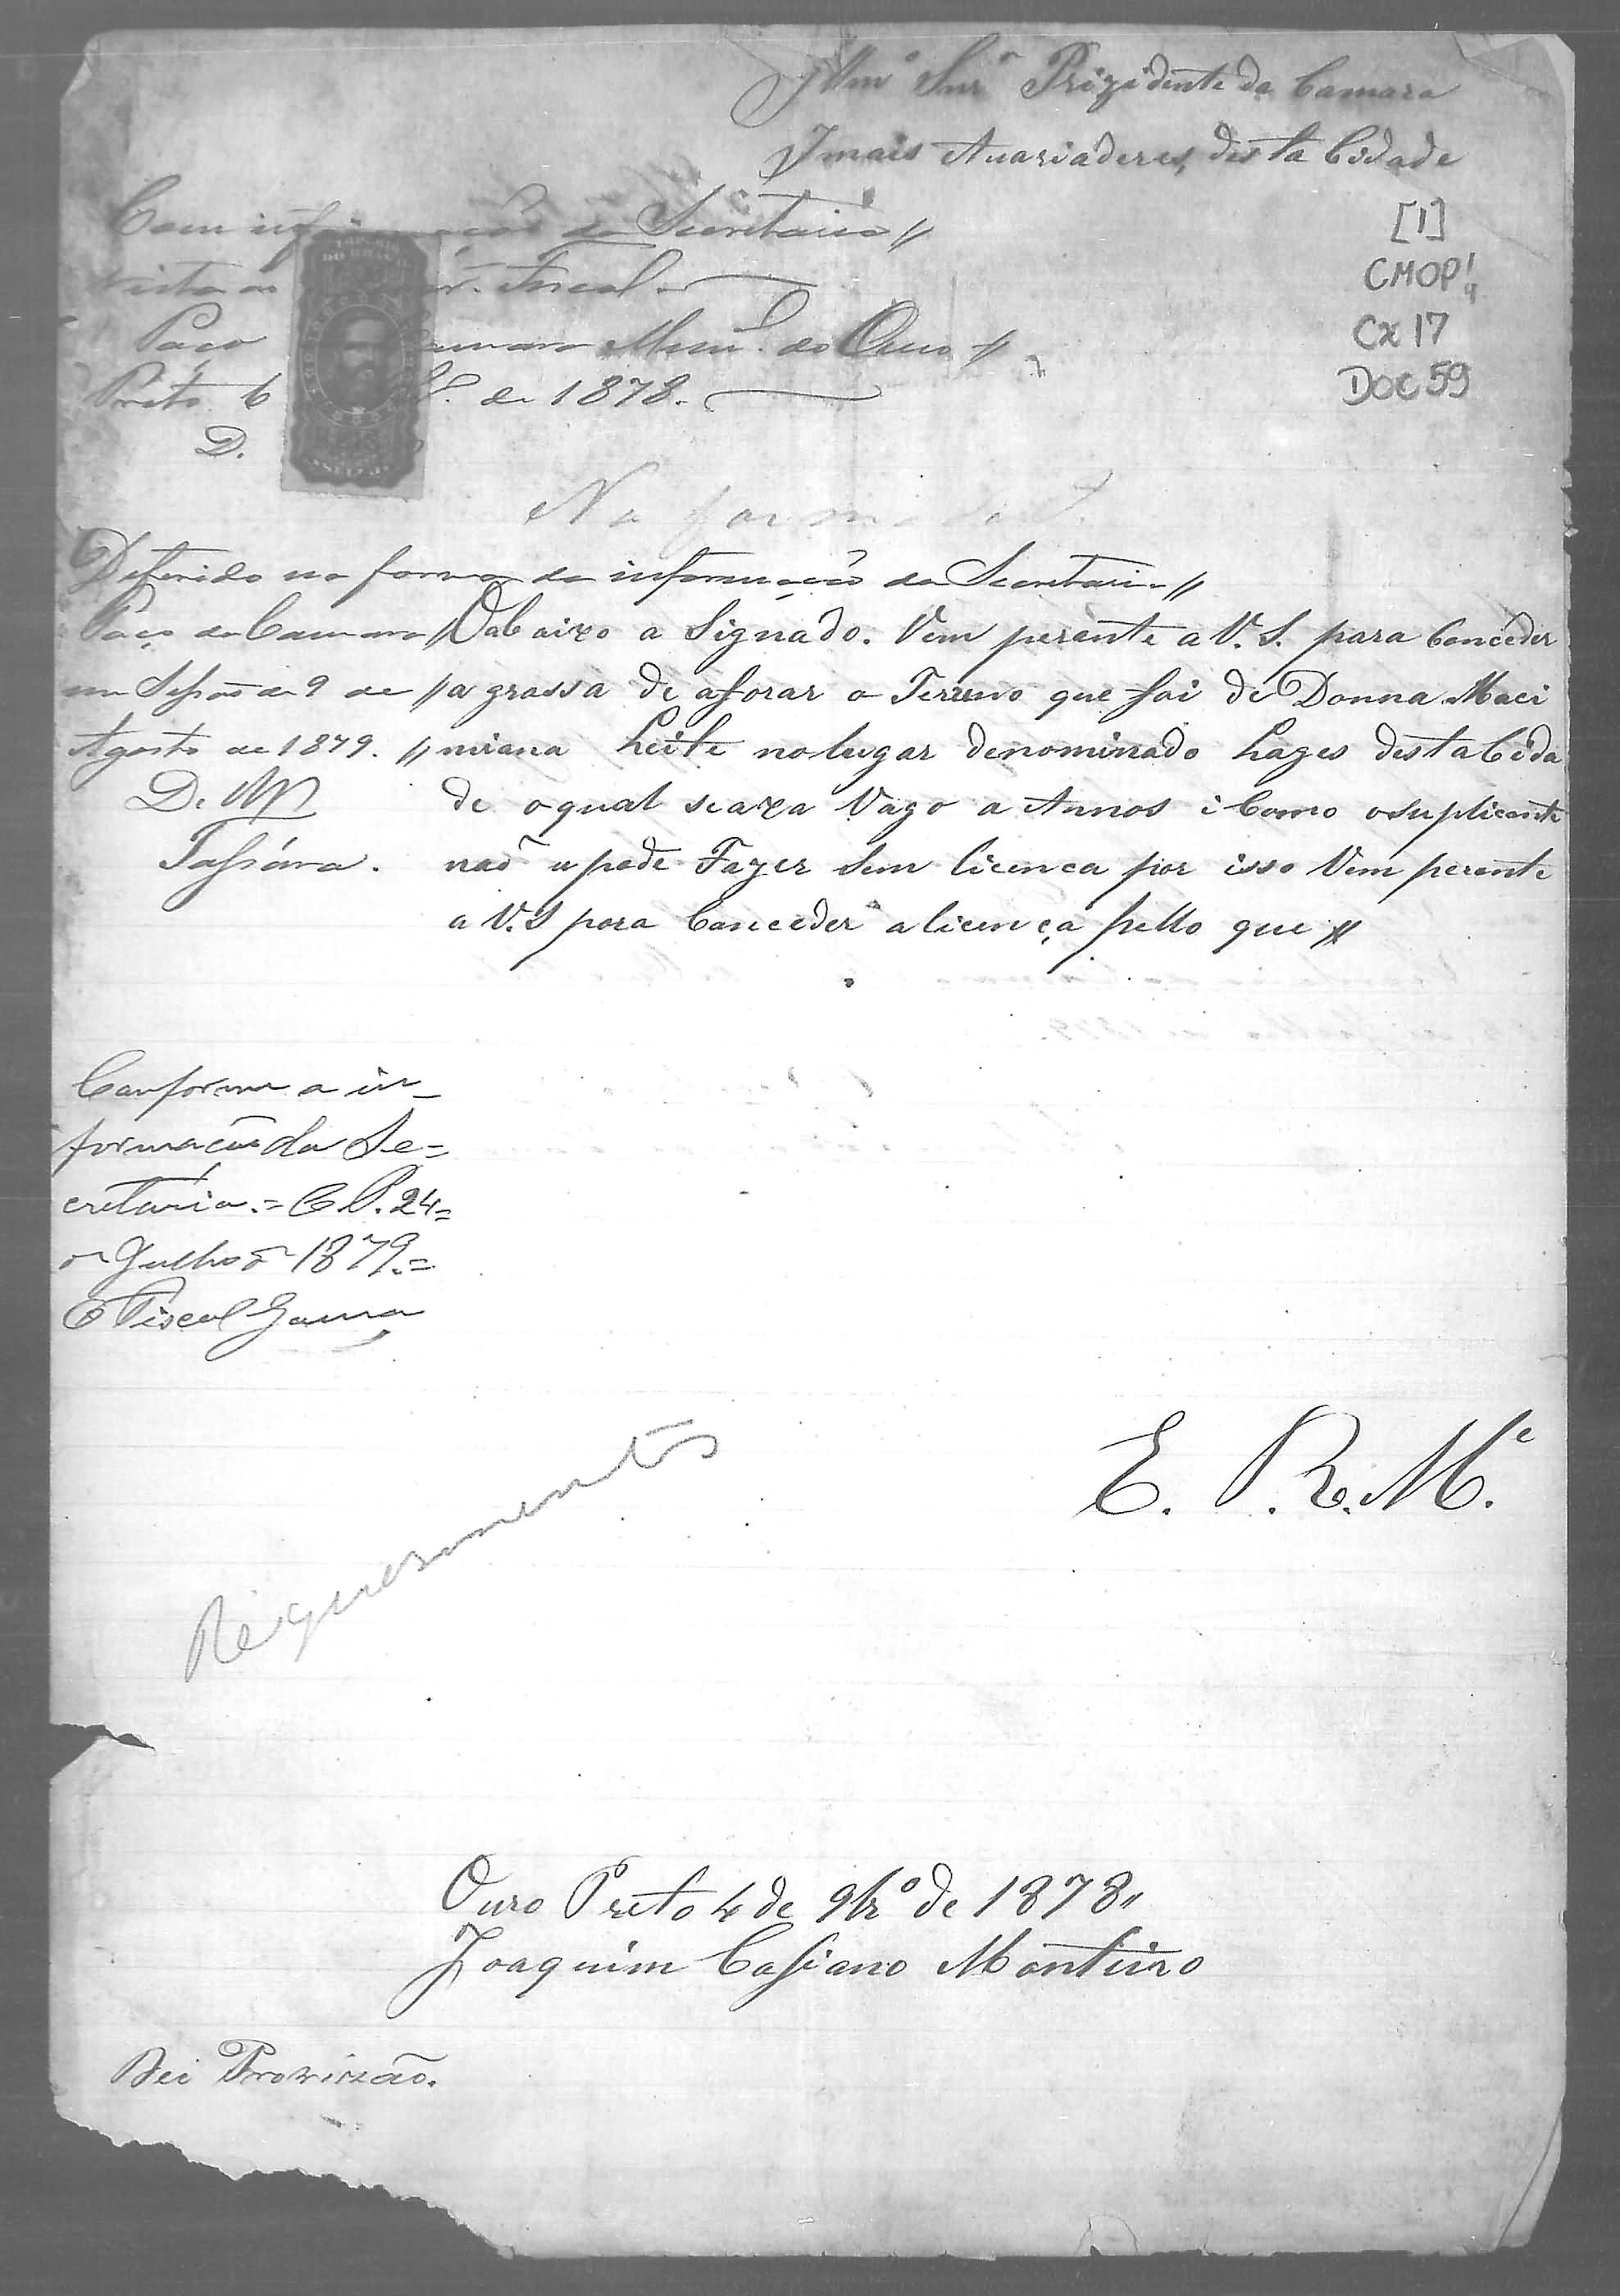 Illmº Snrº Prizidente da Camara
Imais Auariaderes, desta Cidade
[1]
CMOP
Cx 17
DOC 59
Com informação da Secretaria //
Vista ao Fiscal.
Paço Camara Mun. do Ouro //
Preto 6 de 1878.
D.
Na forma
Deferido na forma da informação da Secretaria //
Paço da Camara //
em Sessão de 9 de //
Agosto de 1879. //
D. M
Tassára.
Oabaixo a Signado. Vem perante a V. S. para Conceder
a grassa de aforar o Terreno que foi de Donna Maci
miana Leite no lugar denominado Lages desta Cida
de o qual seaxa Vago a Annos i Como osuplicante
não u pode Fazer Sem licenca por isso Vem perante
a V. S para Conceder a licença pello que //
Conforme a in-
formação da Se=
cretaria.= O P. 24=
de Julho de 1879.=
O Fiscal Gama
E. R. Mᶜᵉ.
Requerimentos
Ouro Preto 4 de 9brº de 1878,,
Joaquim Casiano Monteiro
Dei Provizão.